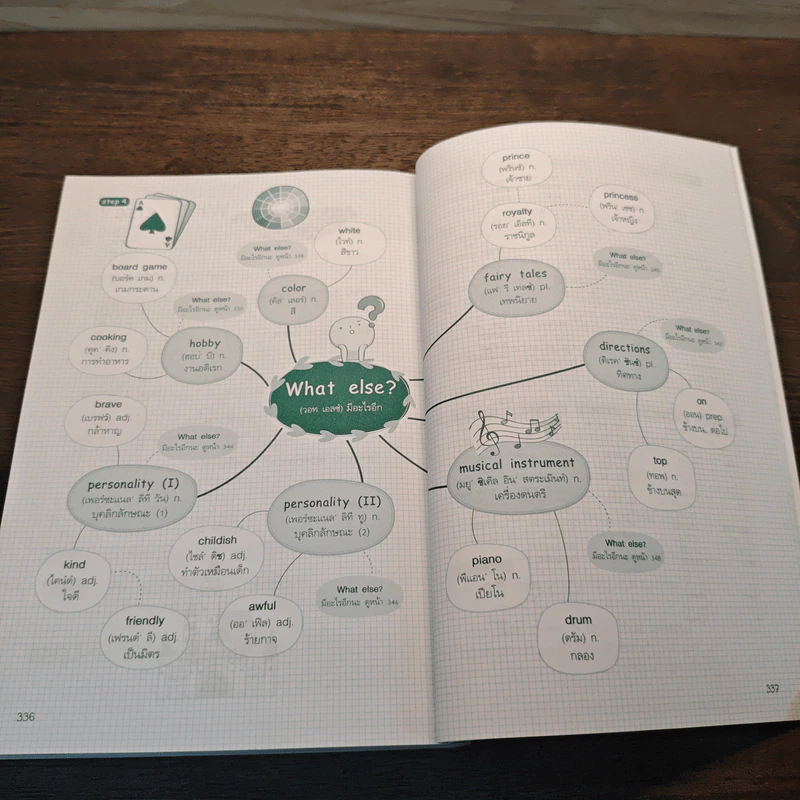 step 4
A
What else?
มีอะไรอีกนะ ดูหน้า
white
(ไวท์) n.
สีขาว
board game
(บอร์ด เกม) n.
เกมกระดาน
color
(คัล' เลอร์) n.
สี
What else?
มีอะไรอีกนะ ดูหน้า
cooking
(คุค' คิง) n.
การทำอาหาร
hobby
(ฮอบ' บี) n.
งานอดิเรก
What else?
(วอท เอลซ์) มีอะไรอีก
brave
(เบรฟว์) adj.
กล้าหาญ
What else?
มีอะไรอีกนะ ดูหน้า 344
personality (I)
(เพอร์ซะแนล' ลิที วัน) n.
บุคลิกลักษณะ (1)
personality (II)
(เพอร์ซะแนล' ลิที ทู) n.
บุคลิกลักษณะ (2)
childish
(ไชล์' ดิช) adj.
ทำตัวเหมือนเด็ก
kind
(ไคน์ด์) adj.
ใจดี
What else?
มีอะไรอีกนะ ดูหน้า 346
friendly
(เฟรนด์' ลี) adj.
เป็นมิตร
awful
(ออ' เฟิล) adj.
ร้ายกาจ
336
prince
(พรินซ์) n.
เจ้าชาย
princess
(พริน' เซซ) n.
เจ้าหญิง
royalty
(รอย' เอิลที) n.
ราชนิกูล
What else?
มีอะไรอีกนะ ดูหน้า
fairy tales
(แฟ' รี เทลซ์) pl.
เทพนิยาย
What else?
มีอะไรอีกนะ ดูหน้า
directions
(ดิเรค' ชันซ์) pl.
ทิศทาง
on
(ออน) prep.
ข้างบน, ต่อไป
musical instrument
(มยู' ซิเคิล อิน' สตระเมินท์) n.
เครื่องดนตรี
top
(ทอพ) n.
ข้างบนสุด
What else?
มีอะไรอีกนะ ดูหน้า 348
piano
(พีแอน' โน) n.
เปียโน
drum
(ดรัม) n.
กลอง
337